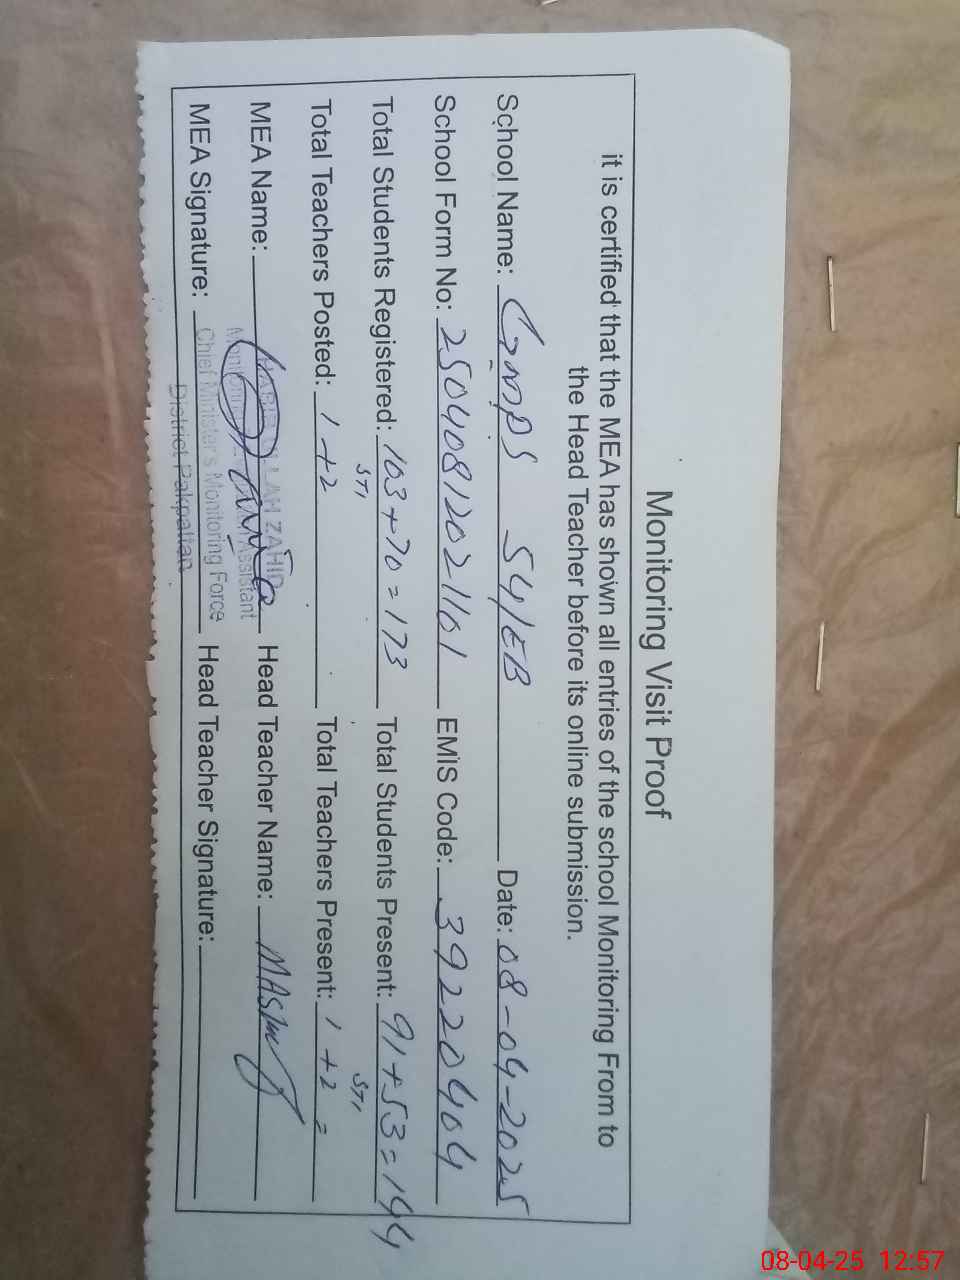 Monitoring Visit Proof
it is certified that the MEA has shown all entries of the school Monitoring From to
the Head Teacher before its online submission.
School Name: GMPS 54/EB Date: 08-04-2025
School Form No: 25040812021101 EMIS Code: 39220404
Total Students Registered: 103+70=173 Total Students Present: 91+53=144
STI STI
Total Teachers Posted: 1+2 Total Teachers Present: 1+2=
MEA Name: Head Teacher Name:
HABIB ULLAH ZAHID
Monitoring Assistant
MEA Signature: Head Teacher Signature:
Chief Minister's Monitoring Force
District Pakpattan
08-04-25 12:57